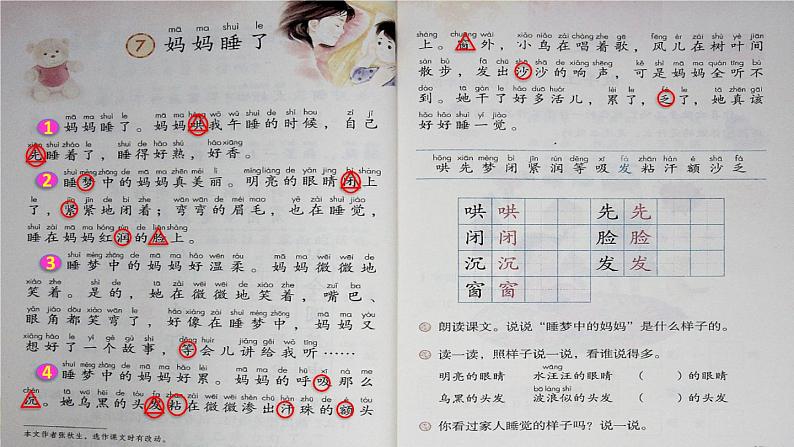 mā ma shuì le
7 妈妈睡了
mā ma shuì le mā ma hǒng wǒ wǔ shuì de shí hou zì jǐ
1 妈妈睡了。妈妈哄我午睡的时候，自己
xiān shuì zháo le shuì de hǎo shú hǎo xiāng
先睡着了，睡得好熟，好香。
shuì mèng zhōng de mā ma zhēn měi lì míng liàng de yǎn jing bì shàng
2 睡梦中的妈妈真美丽。明亮的眼睛闭上
le jǐn jǐn de bì zhe wān wān de méi mao yě zài shuì jiào
了，紧紧地闭着；弯弯的眉毛，也在睡觉，
shuì zài mā ma hóng rùn de liǎn shàng
睡在妈妈红润的脸上。
shuì mèng zhōng de mā ma hǎo wēn róu mā ma wēi wēi de
3 睡梦中的妈妈好温柔。妈妈微微地
xiào zhe shì de tā zài wēi wēi de xiào zhe zuǐ bā
笑着。是的，她在微微地笑着，嘴巴、
yǎn jiǎo dōu xiào wān le hǎo xiàng zài shuì mèng zhōng mā ma yòu
眼角都笑弯了，好像在睡梦中，妈妈又
xiǎng hǎo le yí gè gù shi děng huìr jiǎng gěi wǒ tīng
想好了一个故事，等会儿讲给我听……
shuì mèng zhōng de mā ma hǎo lèi mā ma de hū xī nà me
4 睡梦中的妈妈好累。妈妈的呼吸那么
chén tā wū hēi de tóu fa zhān zài wēi wēi shèn chū hàn zhū de é tóu
沉。她乌黑的头发粘在微微渗出汗珠的额头
本文作者张秋生，选作课文时有改动。
shàng chuāng wài xiǎo niǎo zài chàng zhe gē fēng ér zài shù yè jiān
上。窗外，小鸟在唱着歌，风儿在树叶间
sàn bù fā chū shā shā de xiǎng shēng kě shì mā ma quán tīng bú
散步，发出沙沙的响声，可是妈妈全听不
dào tā gàn le hǎo duō huór lèi le fá le tā zhēn gāi
到。她干了好多活儿，累了，乏了，她真该
hǎo hǎo shuì yí jiào
好好睡一觉。
hǒng xiān mèng bì jǐn rùn děng xī fà zhān hàn é shā fá
哄先梦闭紧润等吸发粘汗额沙乏
哄 哄 先 先
闭 闭 脸 脸
沉 沉 发 发
窗 窗
朗读课文。说说“睡梦中的妈妈”是什么样子的。
读一读，照样子说一说，看谁说得多。
wāng
明亮的眼睛 水汪汪的眼睛 （ ）的眼睛
bō làng shì
乌黑的头发 波浪似的头发 （ ）的头发
你看过家人睡觉的样子吗？说一说。